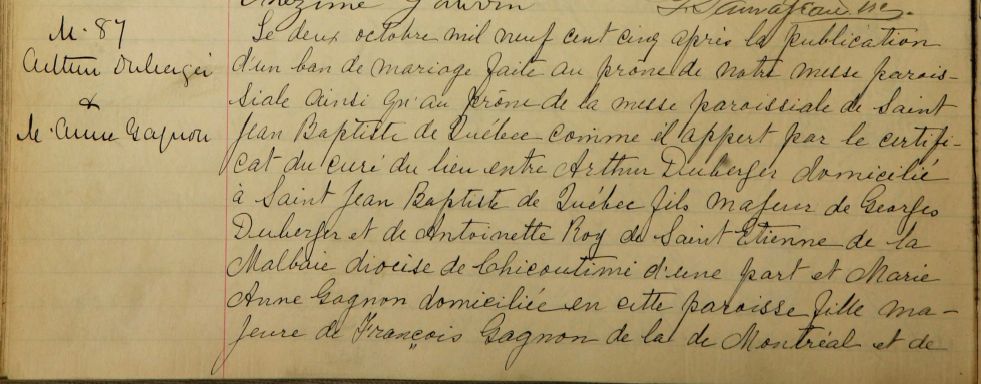 M. 87
Arthur Duberger
&
M. Anne Gagnon
Le deux octobre mil neuf cent cinq après la publication
d'un ban de mariage faite au prône de notre messe parois-
siale ainsi qu'au prône de la messe paroissiale de Saint
Jean Baptiste de Québec comme il appert par le certifi-
cat du curé du lieu entre Arthur Duberger domicilié
à Saint Jean Baptiste de Québec fils majeur de Georges
Duberger et de Antoinette Roy de Saint Etienne de la
Malbaie diocèse de Chicoutimi d'une part et Marie
Anne Gagnon domiciliée en cette paroisse fille ma-
jeure de François Gagnon de la de Montréal et de